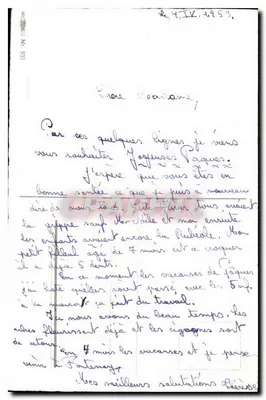 le 4.IV.1953.
Chère Madame,
Par ses quelques lignes je viens
vous souhaiter Joyeuses Pâques.
J'espère que vous êtes en
bonne santée ce que je puis à nouveau
dire de nous tous
la grippe sauf et moi ensuite
les enfants avaient encore la Rubéole. Mon
petit âgé de 7 mois est à croquer
il a que 6 dents.
En ce moment les vacances de Pâques
j'ai hâte quelles soit passé, avec les 5 gs
à la maison ça fait du travail.
Ici nous avons du beau temps. Les
arbres fleurissent déjà et les cigognes sont
de retour. En 4 mois les vacances et je pense
venir à Fontenay.
Mes meilleurs salutations